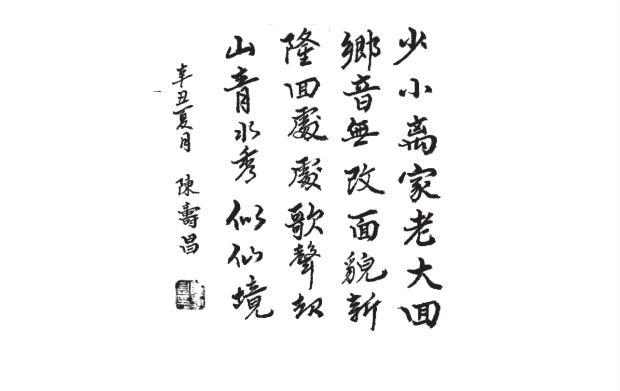 少小离家老大囬
鄉音無改面貌新
隆囬處處歌聲起
山青水秀似仙境
辛丑夏月 陳壽昌